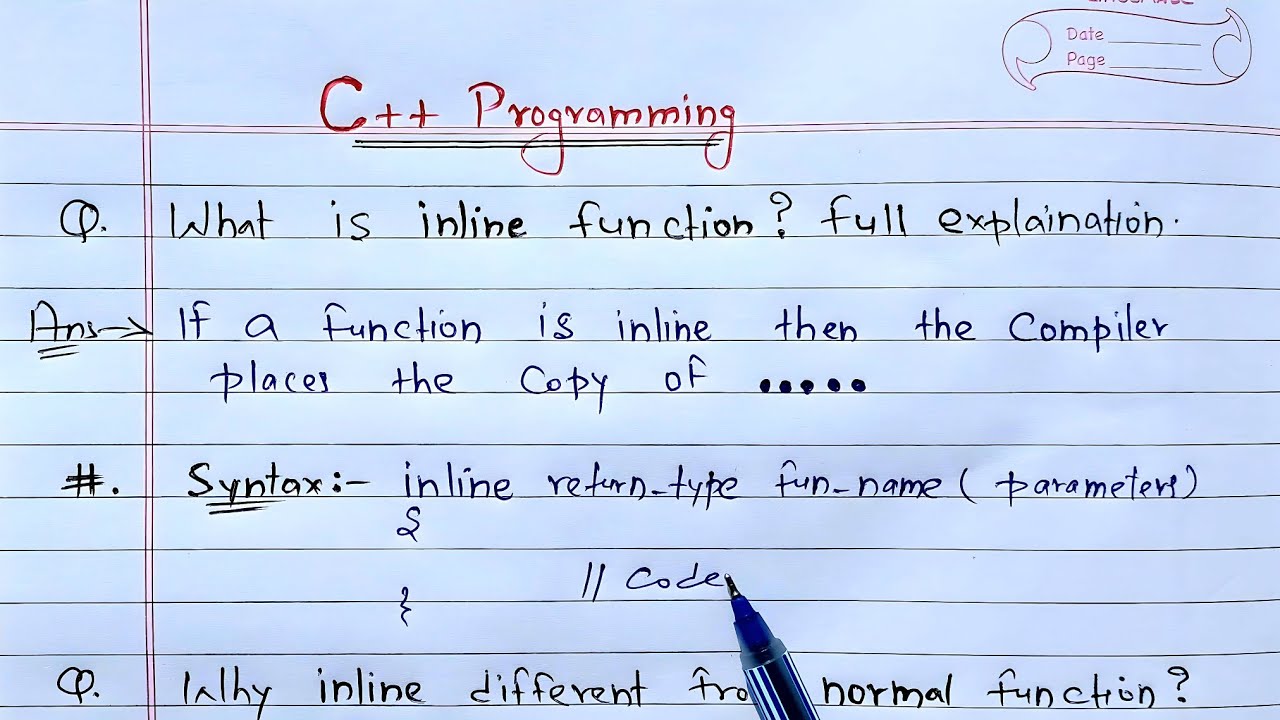 Date
Page
C++ Programming
Q. What is inline function? full explaination.
Ans→ If a function is inline then the Compiler
places the Copy of •••••
#. Syntax:- inline return-type fun-name ( parameters)
{
// Code
}
Q. Why inline different fro normal function?